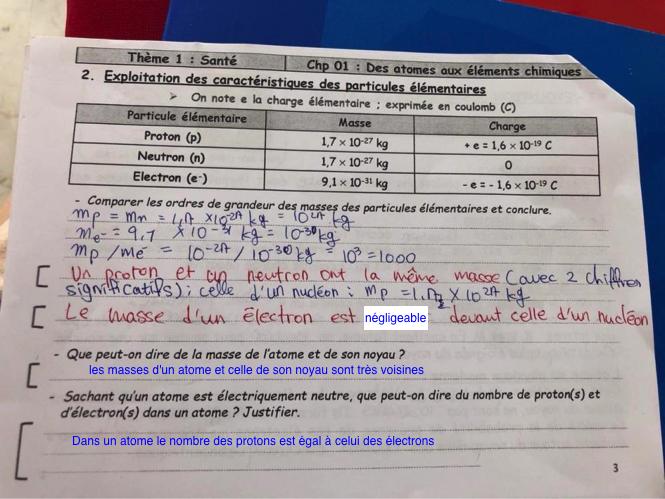 Thème 1 : Santé
Chp 01 : Des atomes aux éléments chimiques
2. Exploitation des caractéristiques des particules élémentaires
➢ On note e la charge élémentaire ; exprimée en coulomb (C)
Particule élémentaire Masse Charge
Proton (p) 1,7 × 10⁻²⁷ kg + e = 1,6 × 10⁻¹⁹ C
Neutron (n) 1,7 × 10⁻²⁷ kg 0
Electron (e⁻) 9,1 × 10⁻³¹ kg - e = - 1,6 × 10⁻¹⁹ C
- Comparer les ordres de grandeur des masses des particules élémentaires et conclure.
mp = mn = 1,7 × 10⁻²⁷ kg = 10²⁷ kg
me⁻ = 9,1 × 10⁻³¹ kg = 10⁻³⁰ kg
mp / me⁻ = 10⁻²⁷ / 10⁻³⁰ kg = 10³ = 1000
Un proton et un neutron ont la même masse (avec 2 chiffres
significatifs) ; celle d'un nucléon : mp = 1,7 × 10²⁷ kg
Le masse d'un électron est négligeable devant celle d'un nucléon
- Que peut-on dire de la masse de l'atome et de son noyau ?
les masses d'un atome et celle de son noyau sont très voisines
- Sachant qu'un atome est électriquement neutre, que peut-on dire du nombre de proton(s) et
d'électron(s) dans un atome ? Justifier.
Dans un atome le nombre des protons est égal à celui des électrons
3